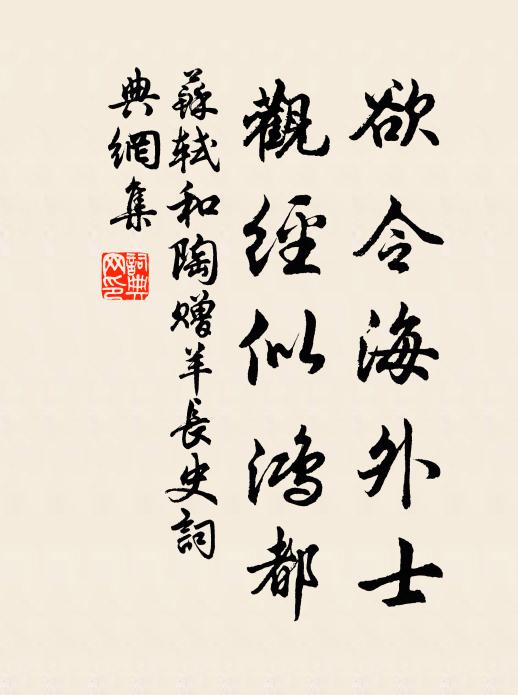 欲令海外士
觀經似鴻都
蘇軾和陶贈羊長史詞
典網集
詞典
网印